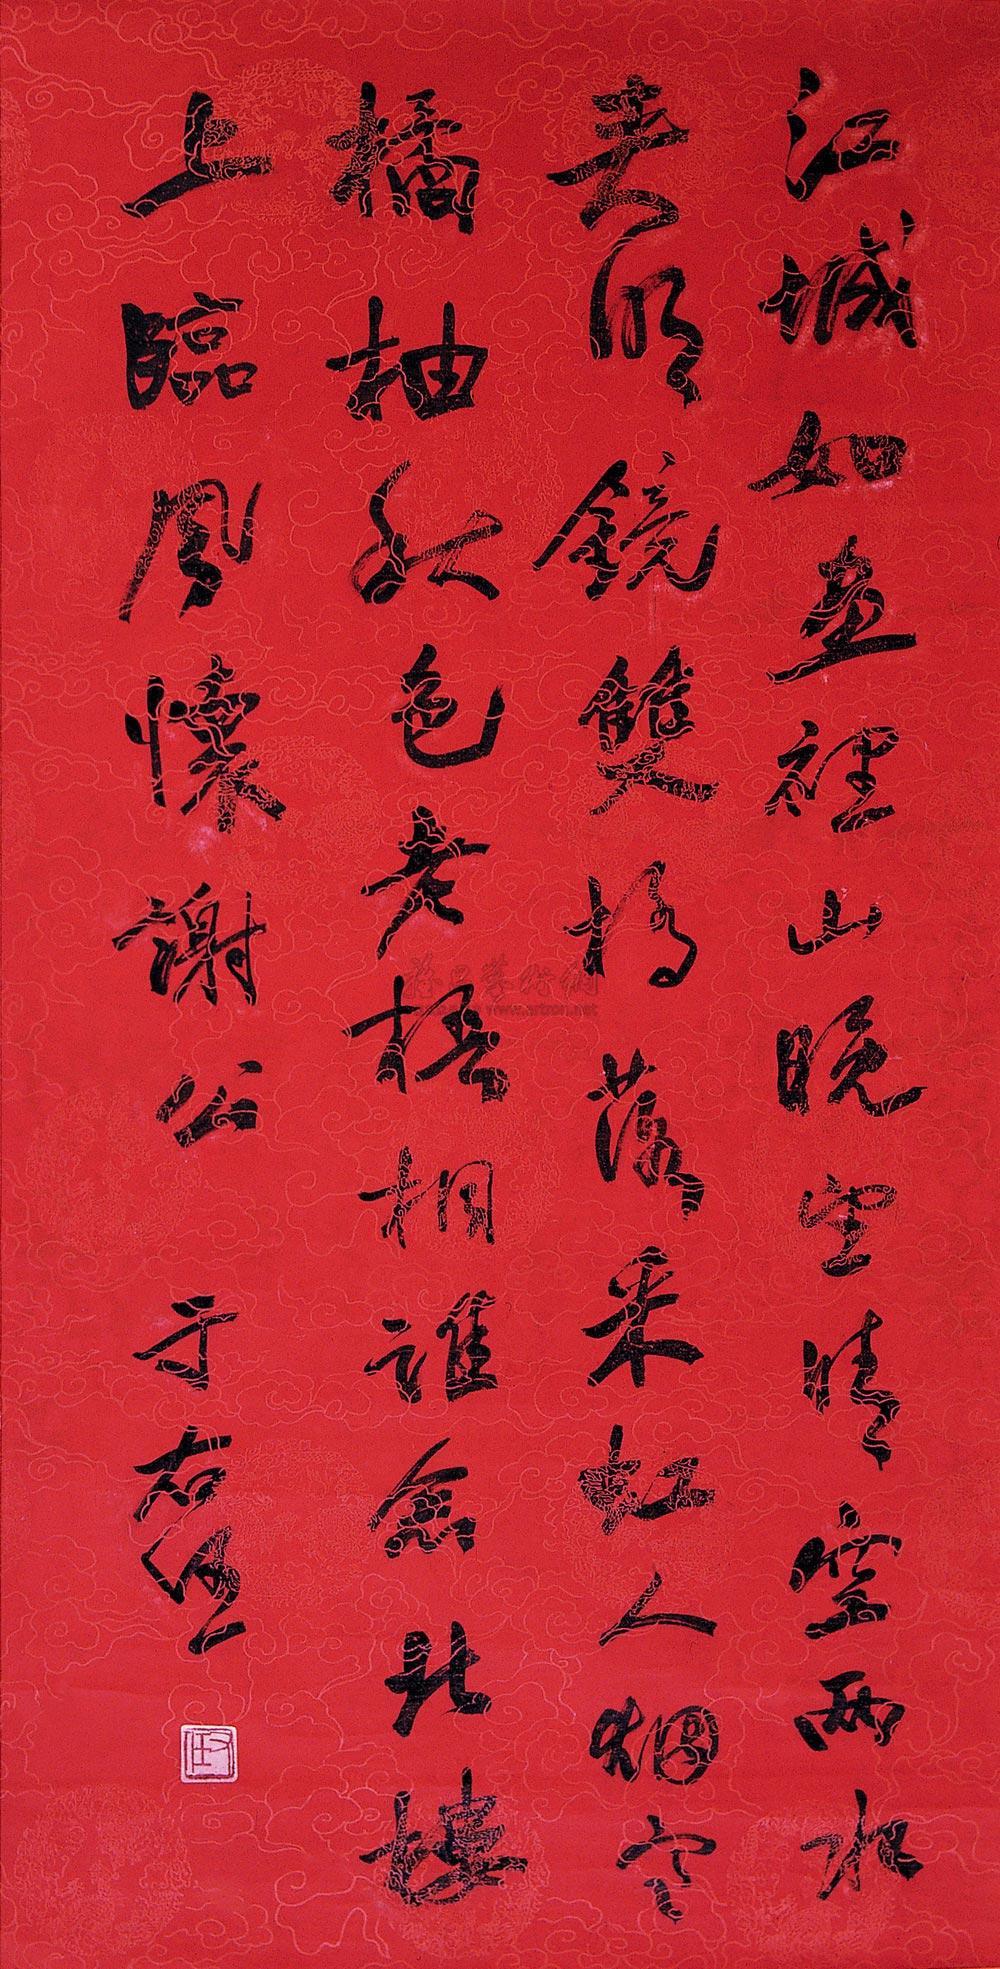 江城如畫裡山晚望晴空兩水
夾明鏡雙橋落采虹人烟寒
橘柚秋色老梧桐誰念北樓
上臨風懷謝公 于右任
雅昌藝術網
www.artron.net